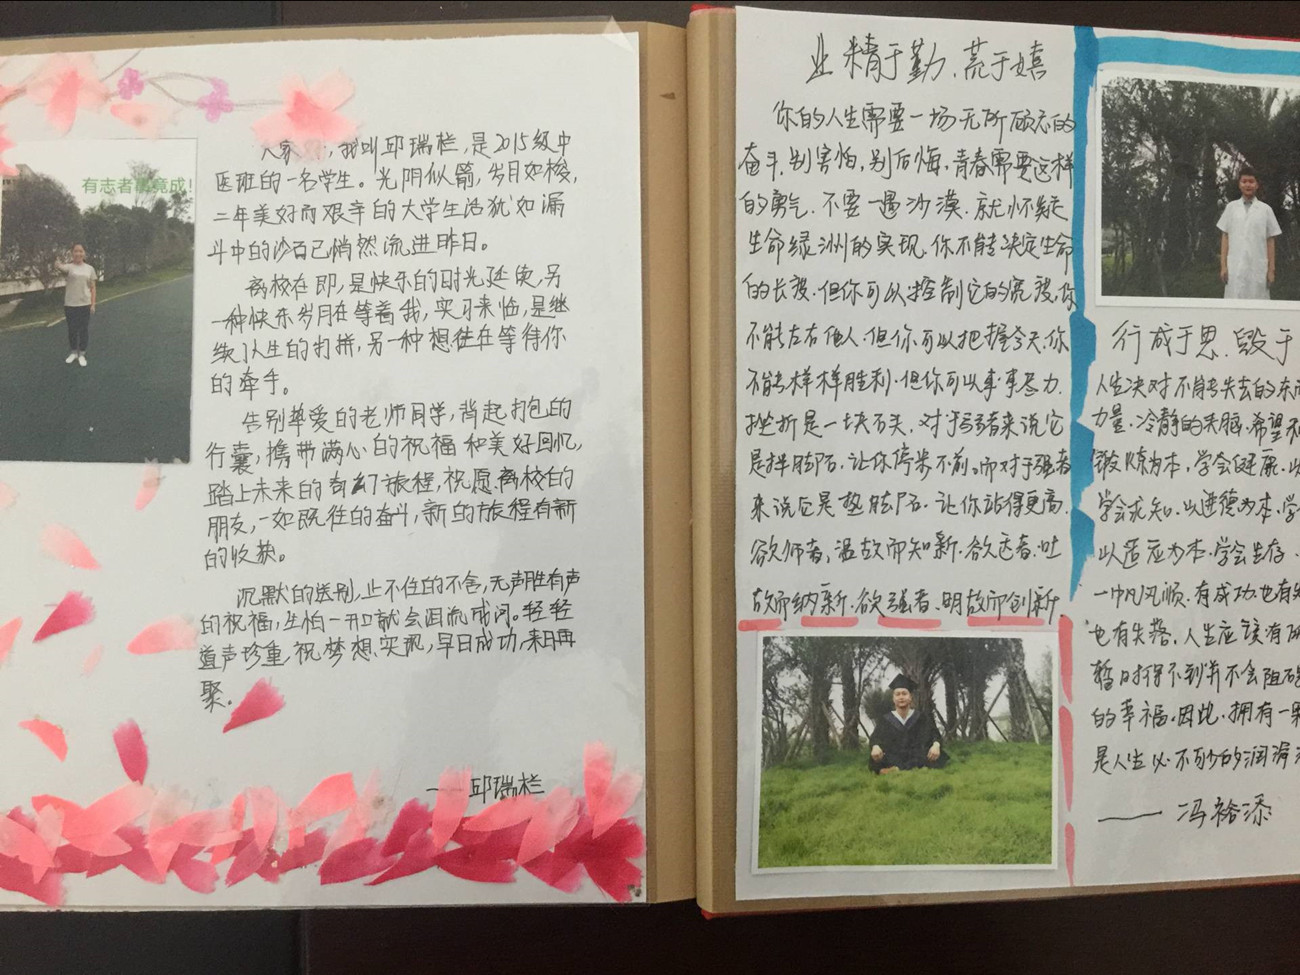 有志者事竟成!
大家 ,我叫邱瑞栏,是2015级中
医班的一名学生。光阴似箭,岁月如梭,
二年美好而艰辛的大学生活犹如漏
斗中的沙石已悄然流进昨日。
离校在即,是快乐的时光延续,另
一种快乐岁月在等着我,实习来临,是继
续人生的打拼,另一种想往在等待你
的牵手。
告别挚爱的老师同学,背起打包的
行囊,携带满心的祝福和美好回忆,
踏上未来的奇幻旅程,祝愿离校的
朋友,一如既往的奋斗,新的旅程有新
的收获。
沉默的送别,止不住的不舍,无声胜有声
的祝福,生怕一开口就会泪流成河。轻轻
道声珍重,祝梦想实现,早日成功,来日再
聚。
——邱瑞栏
业精于勤、荒于嬉
你的人生需要一场无所顾忌的
奋斗,别害怕,别后悔,青春需要这样
的勇气.不要一遇沙漠.就怀疑
生命绿洲的实现.你不能决定生命
的长度.但你可以控制它的宽度.你
不能左右他人.但你可以把握今天.你
不能样样胜利.但你可以事事尽力.
挫折是一块石头.对于弱者来说它
是绊脚石,让你停步不前。而对于强者
来说它是垫脚石.让你站得更高.
欲师者,温故而知新.欲达者.吐
故而纳新.欲强者、明故而创新.
行成于思.毁于
人生决对不能失去的东
力量.冷静的头脑.希望
做人为本,学会健康.
学会求知.以进德为本.学
以适应为本.学会生存.
一帆风顺.有成功.也有
也有失落.人生应该有
暂时得不到并不会阻碍
的幸福.因此.拥有一颗
是人生必不可少的润滑
——冯裕添